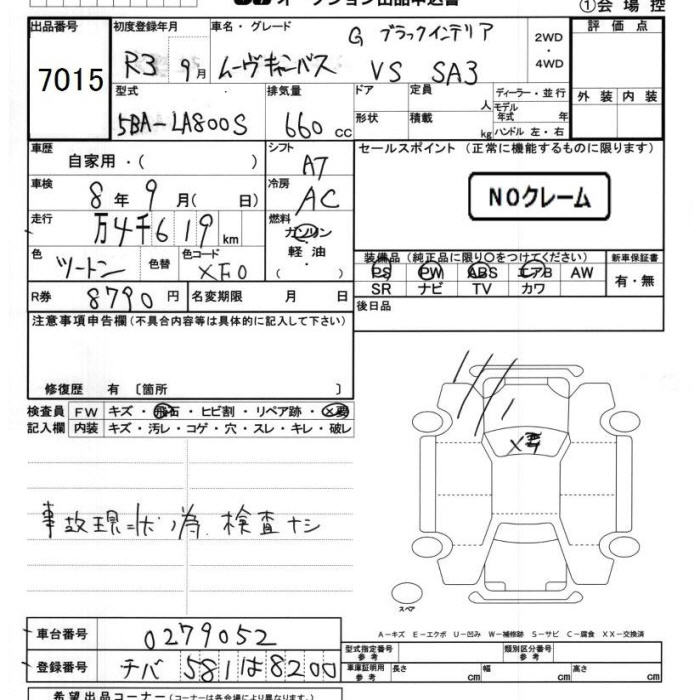 ①会場控
出品番号 初度登録年月 車名・グレード G ブラックインテリア 2WD・4WD 評価点
7015 R3 9月 ムーヴキャンバス VS SA3
型式 排気量 ドア 定員 人 ディーラー・並行 外装 内装
5BA-LA800S 660cc 形状 積載 kg モデル年式 年 ハンドル 左・右
車歴 自家用・( ) シフト A7 セールスポイント (正常に機能するものに限ります)
車検 8年 9月( 日) 冷房 AC NOクレーム
走行 万4千619km 燃料 ガソリン・軽油・( )
色 ツートン 色替 色コード XF0
装備品 (純正品に限り〇をつけてください) 新車保証書
PS PW ABS エアB AW 有・無
SR ナビ TV カワ
R券 8790円 名変期限 月 日 後日品
注意事項申告欄 (不具合内容等は具体的に記入して下さい)
修復歴 有 〔箇所 〕
検査員 FW キズ・飛石・ヒビ割・リペア跡・×要
記入欄 内装 キズ・汚レ・コゲ・穴・スレ・キレ・破レ
事故現状ノ為 検査ナシ
スペア
A-キズ E-エクボ U-凹み W-補修跡 S-サビ C-腐食 XX-交換済
車台番号 0279052 型式指定番号 参考 類別区分番号 参考
登録番号 チバ 581 は 8200 車庫証明用 参考 長さ cm 幅 cm 高さ cm
希望出品コーナー (コーナーは各会場により異なります。)